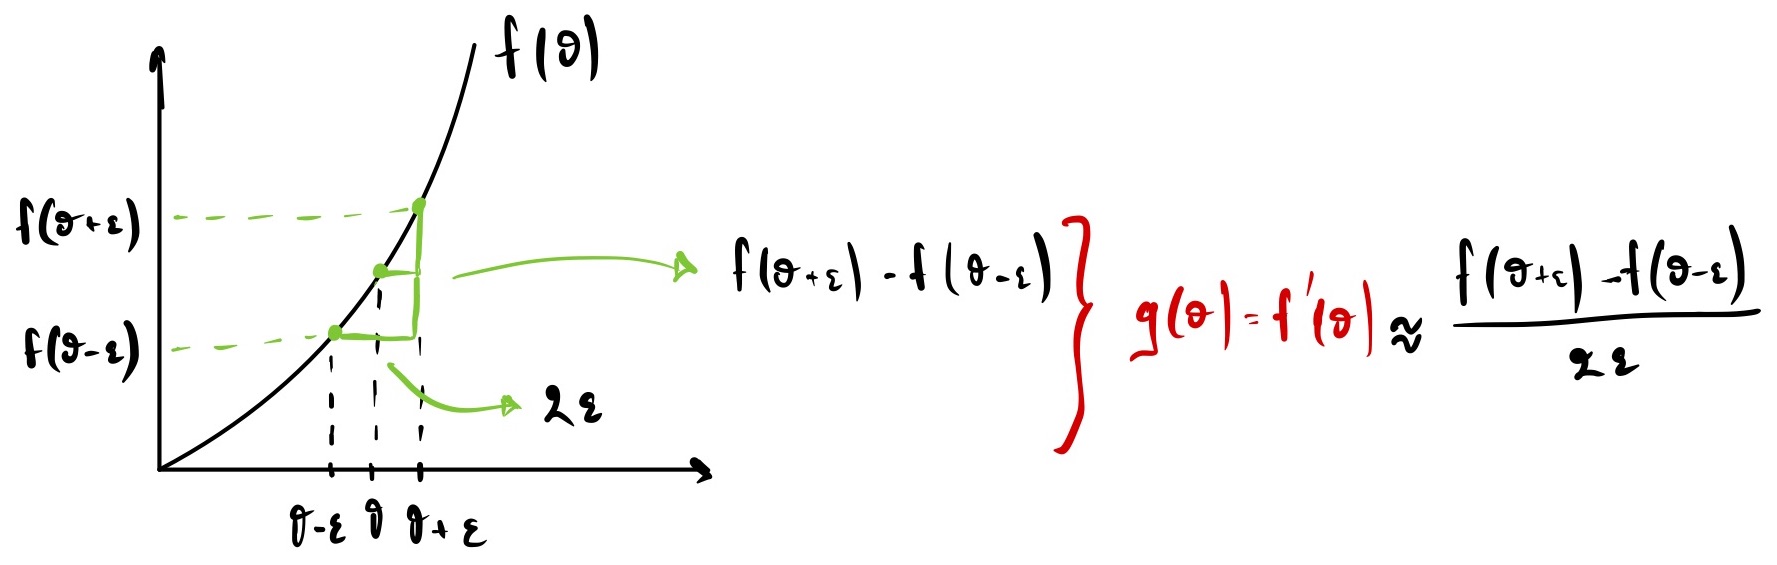 f(θ)
f(θ+ε)
f(θ-ε)
θ-ε θ θ+ε
2ε
f(θ+ε) - f(θ-ε)
g(θ) = f'(θ) ≈ f(θ+ε) - f(θ-ε)
2ε